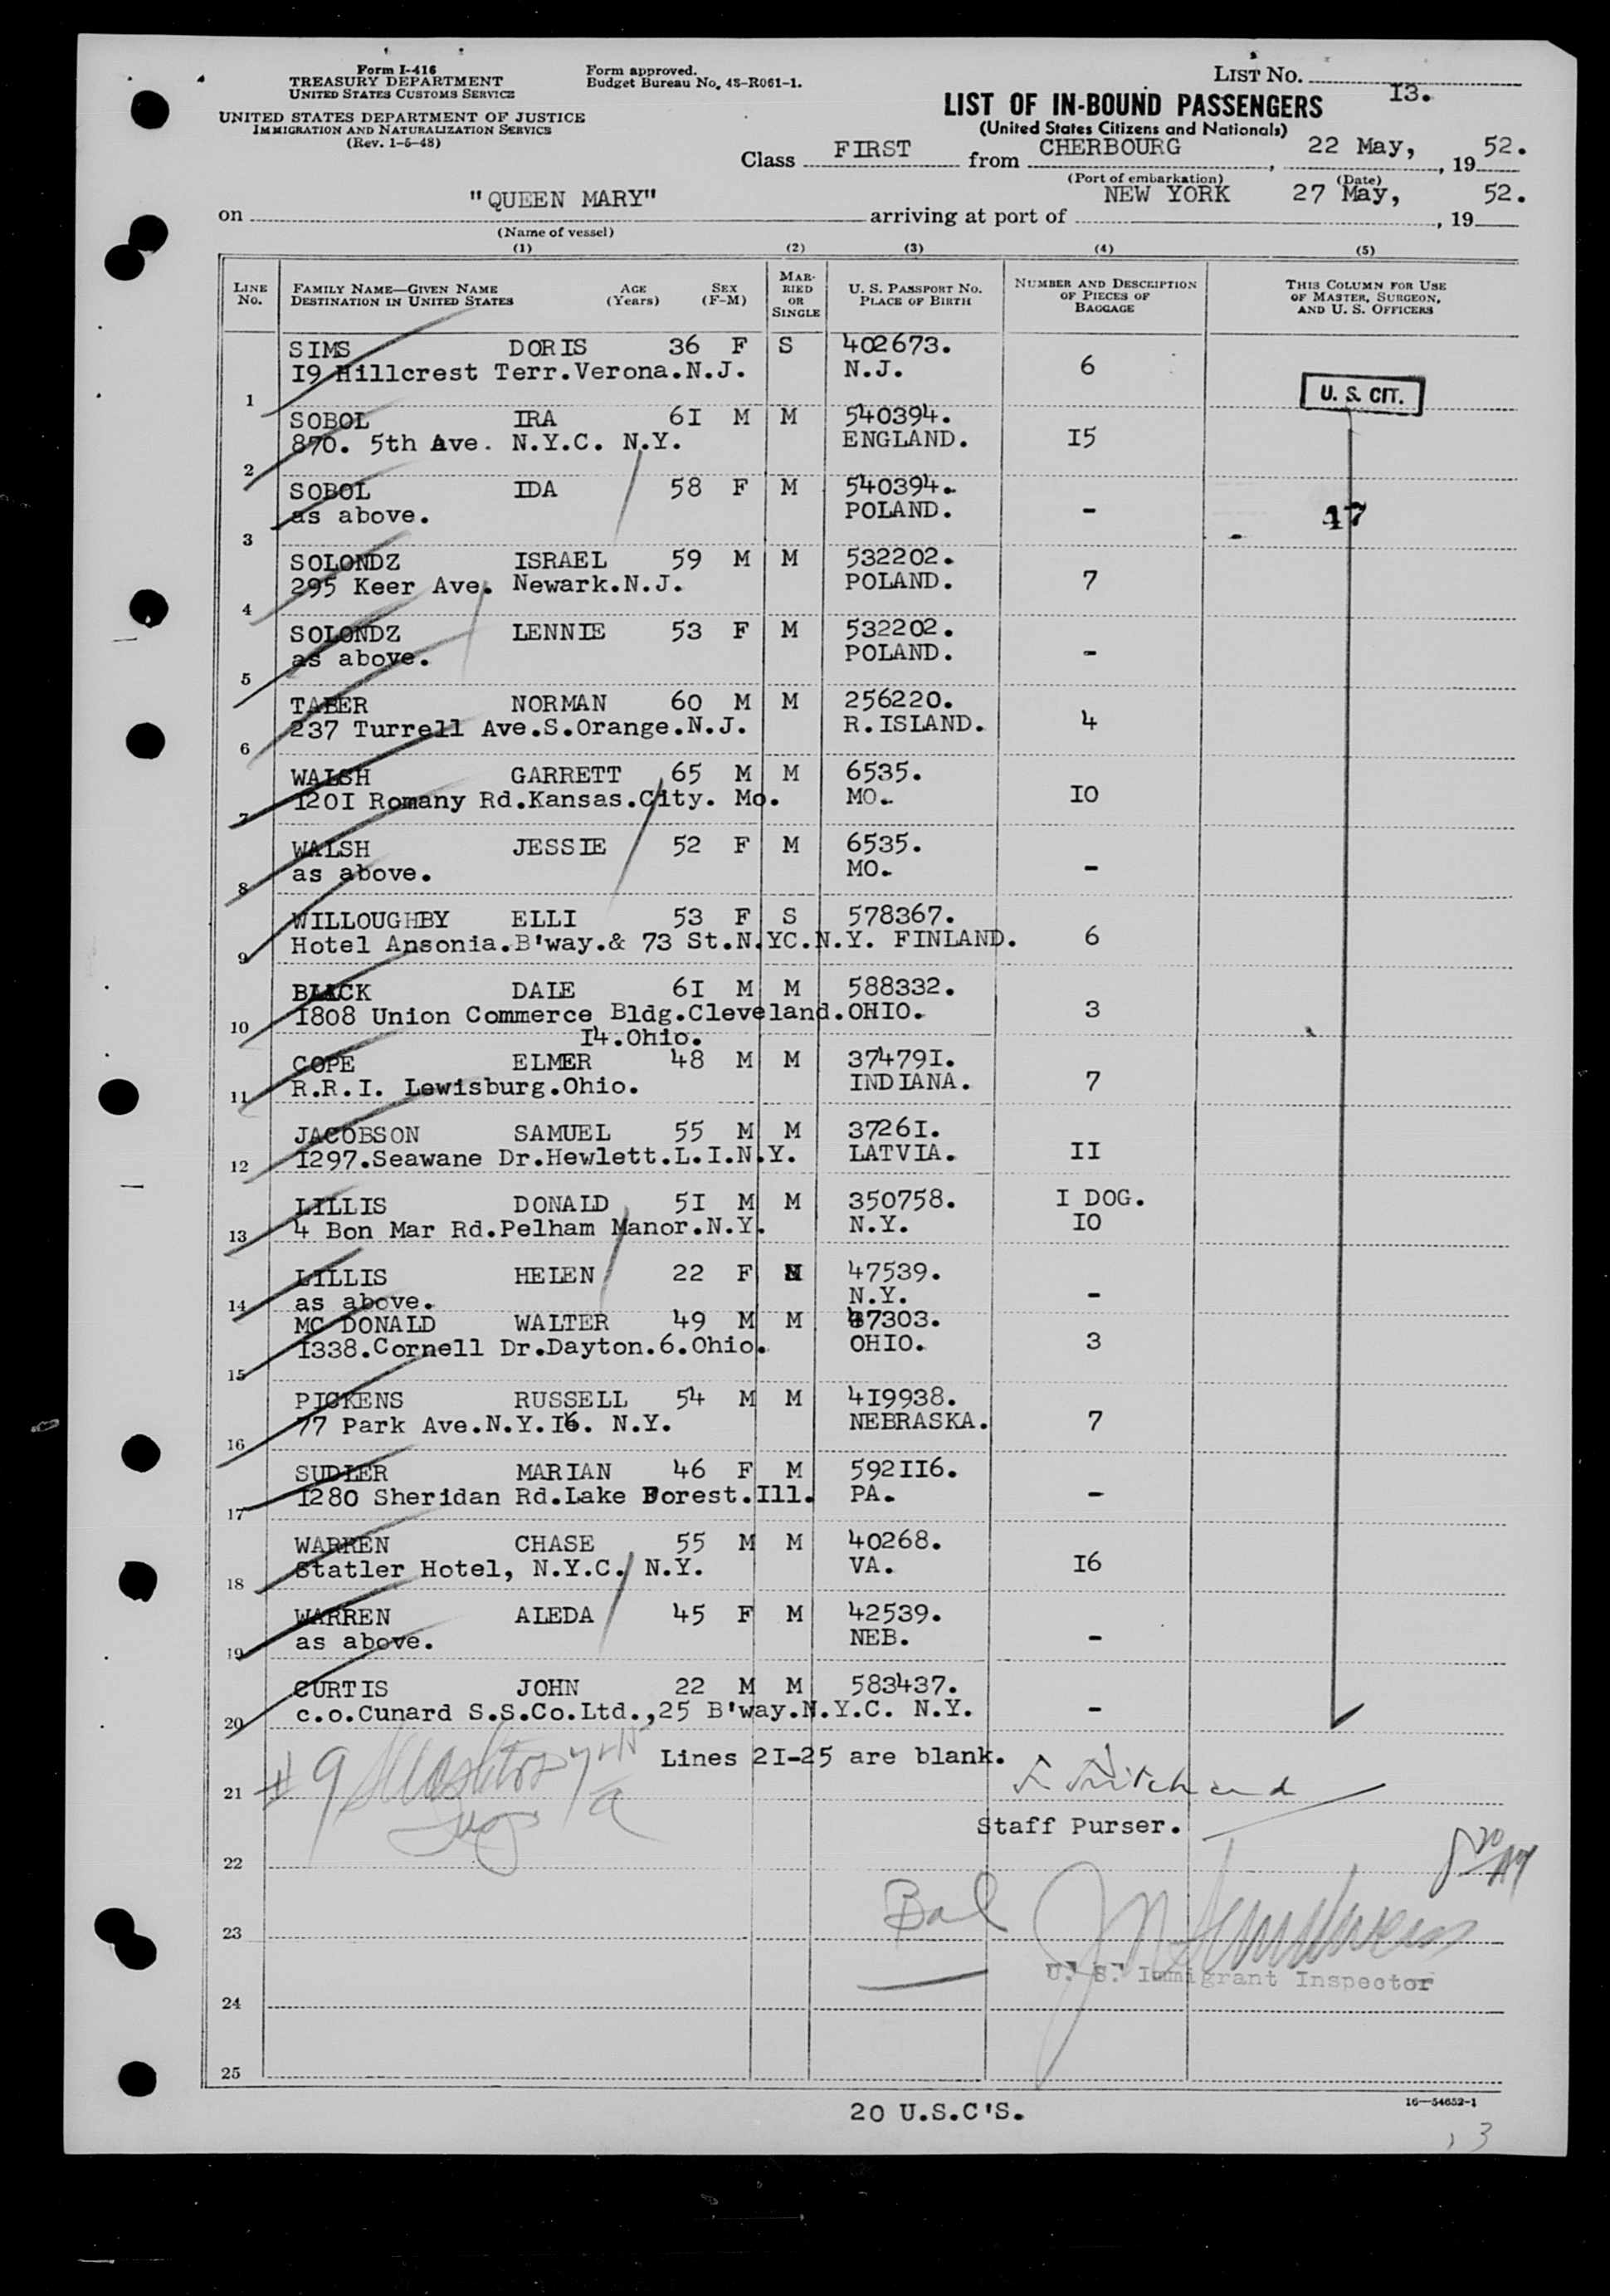 Form I-416
TREASURY DEPARTMENT
UNITED STATES CUSTOMS SERVICE
UNITED STATES DEPARTMENT OF JUSTICE
IMMIGRATION AND NATURALIZATION SERVICE
(Rev. 1-5-48)
Form approved.
Budget Bureau No. 43-R061-1.
LIST No. I3.
LIST OF IN-BOUND PASSENGERS
(United States Citizens and Nationals)
Class FIRST from CHERBOURG, 22 May, , 19 52.
(Port of embarkation) (Date)
on "QUEEN MARY" arriving at port of NEW YORK 27 May, , 19 52.
(Name of vessel)
(1) (2) (3) (4) (5)
LINE No. FAMILY NAME—GIVEN NAME DESTINATION IN UNITED STATES AGE (Years) SEX (F-M) MARRIED OR SINGLE U. S. PASSPORT No. PLACE OF BIRTH NUMBER AND DESCRIPTION OF PIECES OF BAGGAGE THIS COLUMN FOR USE OF MASTER, SURGEON, AND U. S. OFFICERS
SIMS DORIS 36 F S 402673.
1 I9 Hillcrest Terr.Verona.N.J. N.J. 6
U. S. CIT.
SOBOL IRA 6I M M 540394.
2 870. 5th Ave. N.Y.C. N.Y. ENGLAND. I5
SOBOL IDA 58 F M 540394.
3 as above. POLAND. -
47
SOLONDZ ISRAEL 59 M M 532202.
4 295 Keer Ave. Newark.N.J. POLAND. 7
SOLONDZ LENNIE 53 F M 532202.
5 as above. POLAND. -
TABER NORMAN 60 M M 256220.
6 237 Turrell Ave.S.Orange.N.J. R.ISLAND. 4
WALSH GARRETT 65 M M 6535.
7 I20I Romany Rd.Kansas.City. Mo. MO. I0
WALSH JESSIE 52 F M 6535.
8 as above. MO. -
WILLOUGHBY ELLI 53 F S 578367.
9 Hotel Ansonia.B'way.& 73 St.N.YC.N.Y. FINLAND. 6
BLACK DALE 6I M M 588332.
10 I808 Union Commerce Bldg.Cleveland. OHIO. 3
I4.Ohio.
COPE ELMER 48 M M 37479I.
11 R.R.I. Lewisburg.Ohio. INDIANA. 7
JACOBSON SAMUEL 55 M M 3726I.
12 I297.Seawane Dr.Hewlett.L.I.N.Y. LATVIA. II
LILLIS DONALD 5I M M 350758. I DOG.
13 4 Bon Mar Rd.Pelham Manor.N.Y. N.Y. I0
LILLIS HELEN 22 F 47539.
14 as above. N.Y. -
MC DONALD WALTER 49 M M 47303.
15 I338.Cornell Dr.Dayton.6.Ohio. OHIO. 3
PICKENS RUSSELL 54 M M 4I9938.
16 77 Park Ave.N.Y.I6. N.Y. NEBRASKA. 7
SUDLER MARIAN 46 F M 592II6.
17 I280 Sheridan Rd.Lake Forest.Ill. PA. -
WARREN CHASE 55 M M 40268.
18 Statler Hotel, N.Y.C. N.Y. VA. I6
WARREN ALEDA 45 F M 42539.
19 as above. NEB. -
CURTIS JOHN 22 M M 583437.
20 c.o.Cunard S.S.Co.Ltd.,25 B'way.N.Y.C. N.Y. -
Lines 2I-25 are blank.
21 # 9
Pritchard
Staff Purser.
22
Bal
23
U. S. Immigrant Inspector
24
25
20 U.S.C'S.
16—54652-1
13